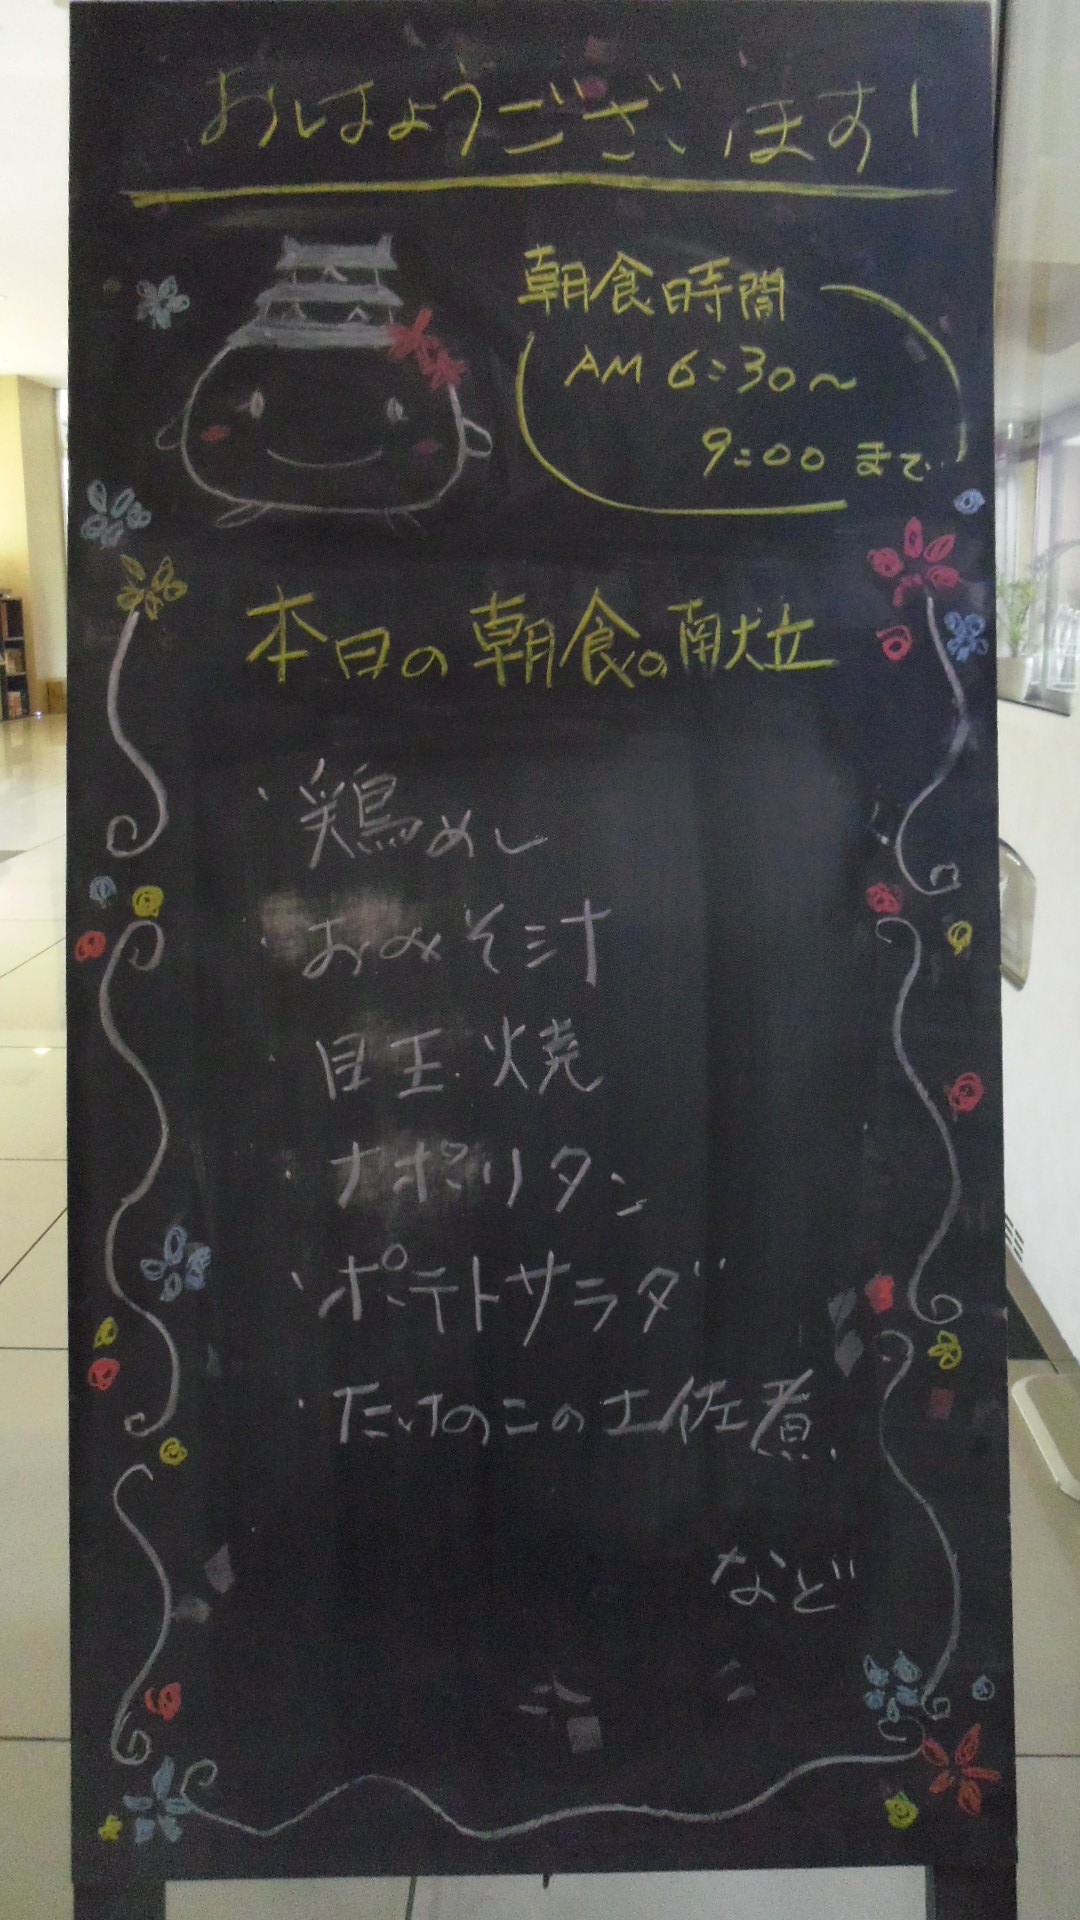 おはようございます!
朝食時間
AM 6:30～
9:00 まで
本日の朝食の献立
・鶏めし
・おみそ汁
・目玉焼
・ナポリタン
・ポテトサラダ
・たけのこの土佐煮
など